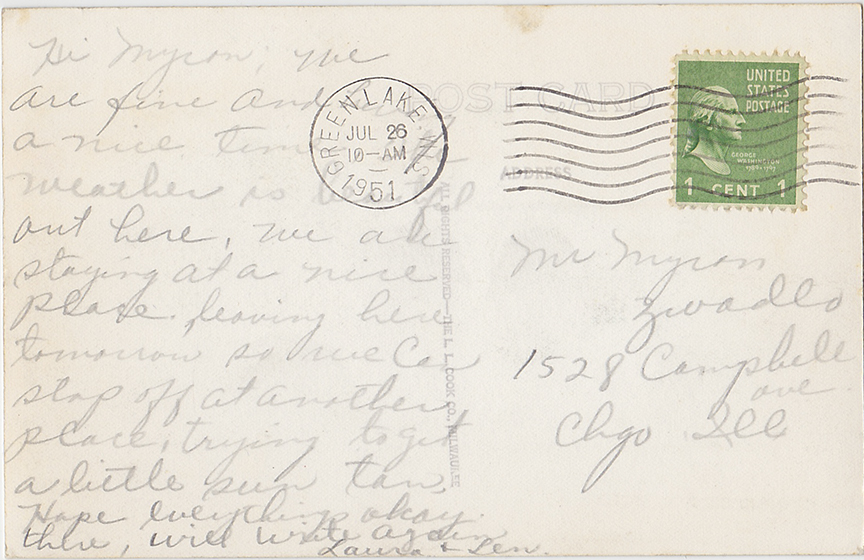 Hi Myron, we
are fine and having
a nice time, the
weather is beautiful
out here, we are
staying at a nice
place. leaving here
tomorrow so we can
stop off at another
place, trying to get
a little sun tan.
Hope everything okay
there, will write again
Laura & Len.
GREEN LAKE, WIS.
JUL 26
10-AM
1951
POST CARD
ADDRESS
UNITED
STATES
POSTAGE
GEORGE
WASHINGTON
1789-1797
1 CENT 1
ALL RIGHTS RESERVED—THE L. L. COOK CO., MILWAUKEE
Mr Myron
Zwadlo
1528 Campbell
ave
Chgo Ill